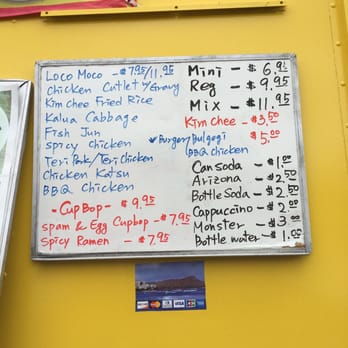 Loco Moco - $7.95/11.95
Chicken Cutlet w/Gravy
Kim chee Fried Rice
Kalua Cabbage
Fish Jun
Spicy Chicken
Teri Pork/Teri Chicken
Chicken Katsu
BBQ Chicken
- Cup Bop - $9.95
Spam & Egg Cupbop - $7.95
Spicy Ramen - $7.95
Mini - $6.95
Reg - $9.95
Mix - $11.95
Kim Chee - $3.50
✓Burgery Bulgogi $5.00
BBQ Chicken
Can Soda - $1.00
Arizona - $2.50
Bottle Soda - $2.50
Cappuccino - $2.00
Monster - $3.00
Bottle water - $1.00
VISA